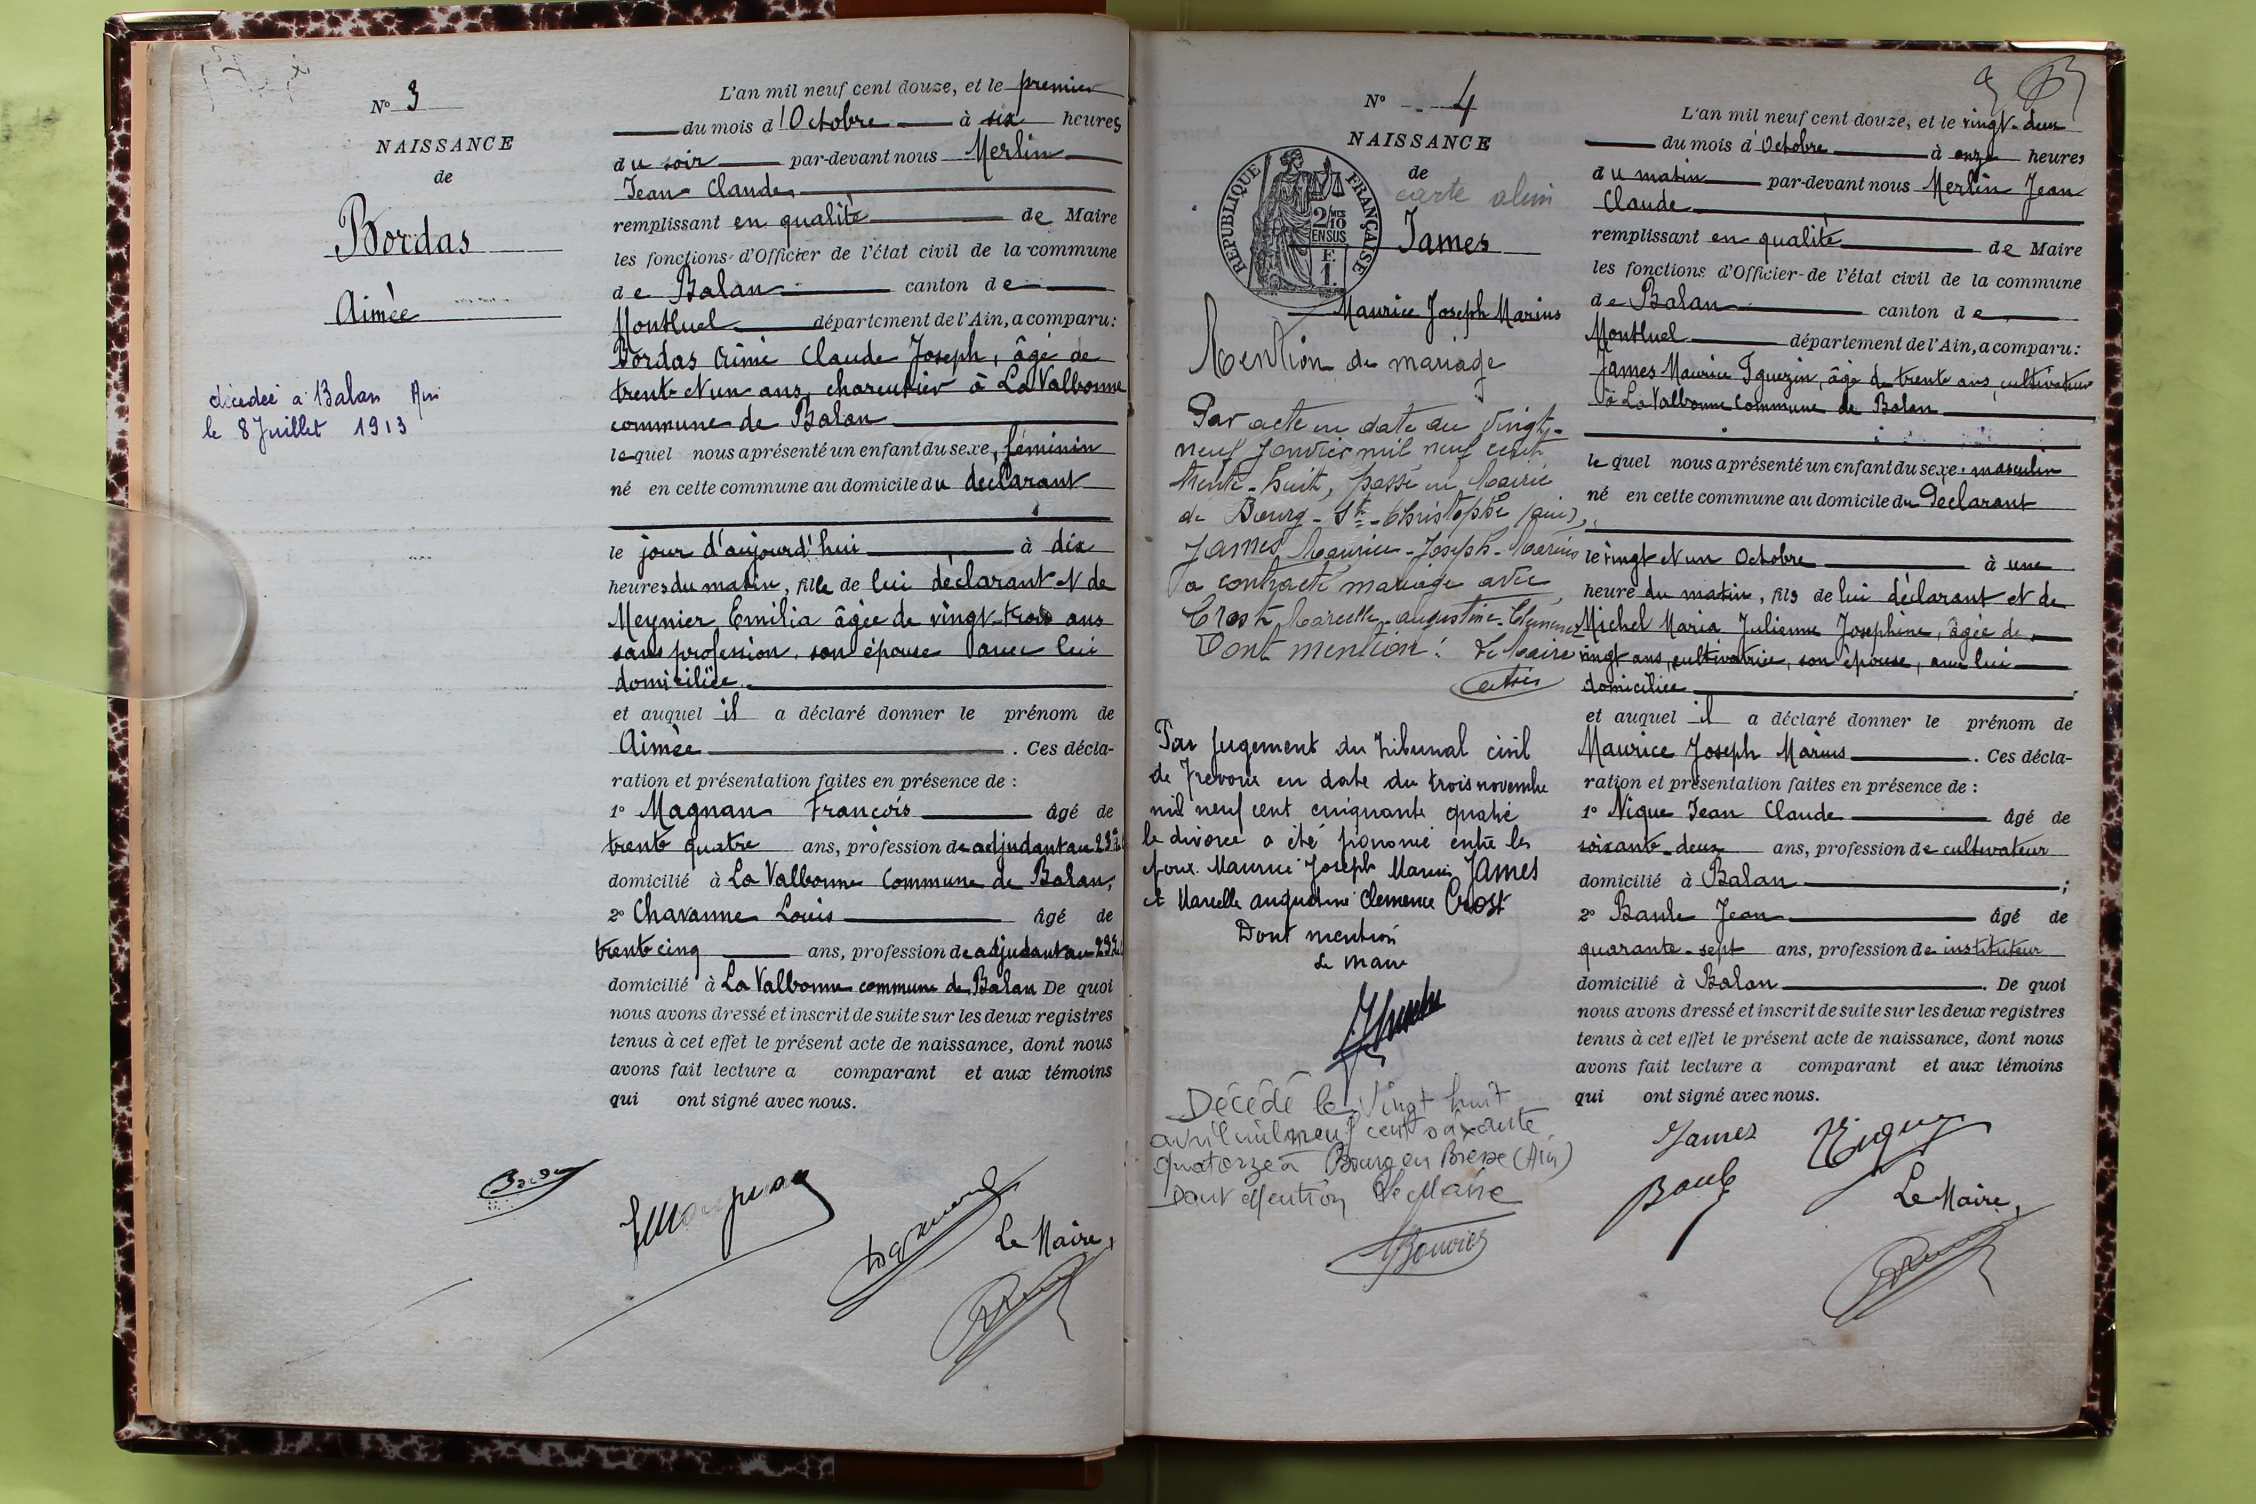 N° 3
NAISSANCE
de
Bordas
Aimée
décédée à Balan Ain
le 8 Juillet 1913
L'an mil neuf cent douze, et le premier
du mois d'Octobre à six heures
du soir par-devant nous Merlin
Jean Claude
remplissant en qualité de Maire
les fonctions d'Officier de l'état civil de la commune
de Balan canton de
Montluel département de l'Ain, a comparu :
Bordas Claude Joseph, âgé de
trente et un ans, charcutier à La Valbonne
commune de Balan
lequel nous a présenté un enfant du sexe féminin
né en cette commune au domicile du déclarant
le jour d'aujourd'hui à dix
heures du matin, fille de lui déclarant et de
Meynier Emilia âgée de vingt-trois ans
sans profession, son épouse avec lui
domiciliée
et auquel il a déclaré donner le prénom de
Aimée . Ces décla-
ration et présentation faites en présence de :
1° Magnan François âgé de
trente quatre ans, profession de adjudant au
domicilié à La Valbonne commune de Balan,
2° Chavanne Louis âgé de
trente cinq ans, profession de adjudant au
domicilié à La Valbonne commune de Balan De quoi
nous avons dressé et inscrit de suite sur les deux registres
tenus à cet effet le présent acte de naissance, dont nous
avons fait lecture a comparant et aux témoins
qui ont signé avec nous.
Le Maire,
N° 4
NAISSANCE
de
carte
RÉPUBLIQUE FRANÇAISE
2/10
EN SUS
F.
1.
James
Maurice Joseph Marius
Mention de mariage
Par acte en date du vingt-
neuf Janvier mil neuf cent
trente-huit, passé en Mairie
de Bourg-St-Christophe (Ain),
James Maurice-Joseph-Marius
a contracté mariage avec
Crost Marcelle-Augustine-Clémence
Dont mention : Le Maire
Par jugement du tribunal civil
de Trévoux en date du trois novembre
mil neuf cent cinquante quatre
le divorce a été prononcé entre les
époux Maurice Joseph Marius JAMES
et Marcelle Augustine Clemence Crost
Dont mention
Le maire
Décédé le Vingt huit
avril mil neuf cent soixante
quatorze à Bourg en Bresse (Ain)
Dont Mention Le Maire
Bouvier
L'an mil neuf cent douze, et le vingt-deux
du mois d'Octobre à onze heures
du matin par-devant nous Merlin Jean
Claude
remplissant en qualité de Maire
les fonctions d'Officier de l'état civil de la commune
de Balan canton de
Montluel département de l'Ain, a comparu :
James Maurice , âgé de trente ans, cultivateur
à La Valbonne commune de Balan
lequel nous a présenté un enfant du sexe masculin
né en cette commune au domicile du Déclarant
le vingt et un Octobre à une
heure du matin, fils de lui déclarant et de
Michel Maria Julienne Joséphine, âgée de
vingt ans, cultivatrice, son épouse, avec lui
domiciliée
et auquel il a déclaré donner le prénom de
Maurice Joseph Marius . Ces décla-
ration et présentation faites en présence de :
1° Nique Jean Claude âgé de
soixante-deux ans, profession de cultivateur
domicilié à Balan ;
2° Jean âgé de
quarante-sept ans, profession de instituteur
domicilié à Balan . De quoi
nous avons dressé et inscrit de suite sur les deux registres
tenus à cet effet le présent acte de naissance, dont nous
avons fait lecture a comparant et aux témoins
qui ont signé avec nous.
James
Le Maire,